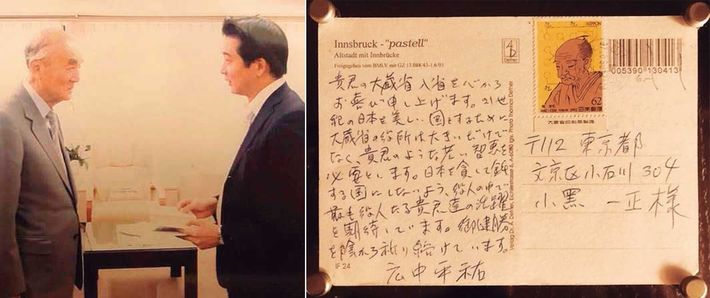 Innsbruck - "pastell"
Altstadt mit Innbrücke
Freigegeben vom BMLV mit GZ 13.088/43-1.6/91
貴君の大蔵省入省を心から
お喜び申し上げます。21世
紀の日本を美しい国とするために
大蔵省の役所は大きいだけで
なく、貴君のような若い智恵を
必要とします。日本を貪して鈍
する国にしないよう、役人の中で
最も役人たる貴君達の活躍
を期待しています。御健勝
を陰から祈り続けています。
広中平祐
IF 24
62
NIPPON
日本郵便
大蔵省印刷局製造
005390 130413
〒112 東京都
文京区小石川 304
小黑 一正 様